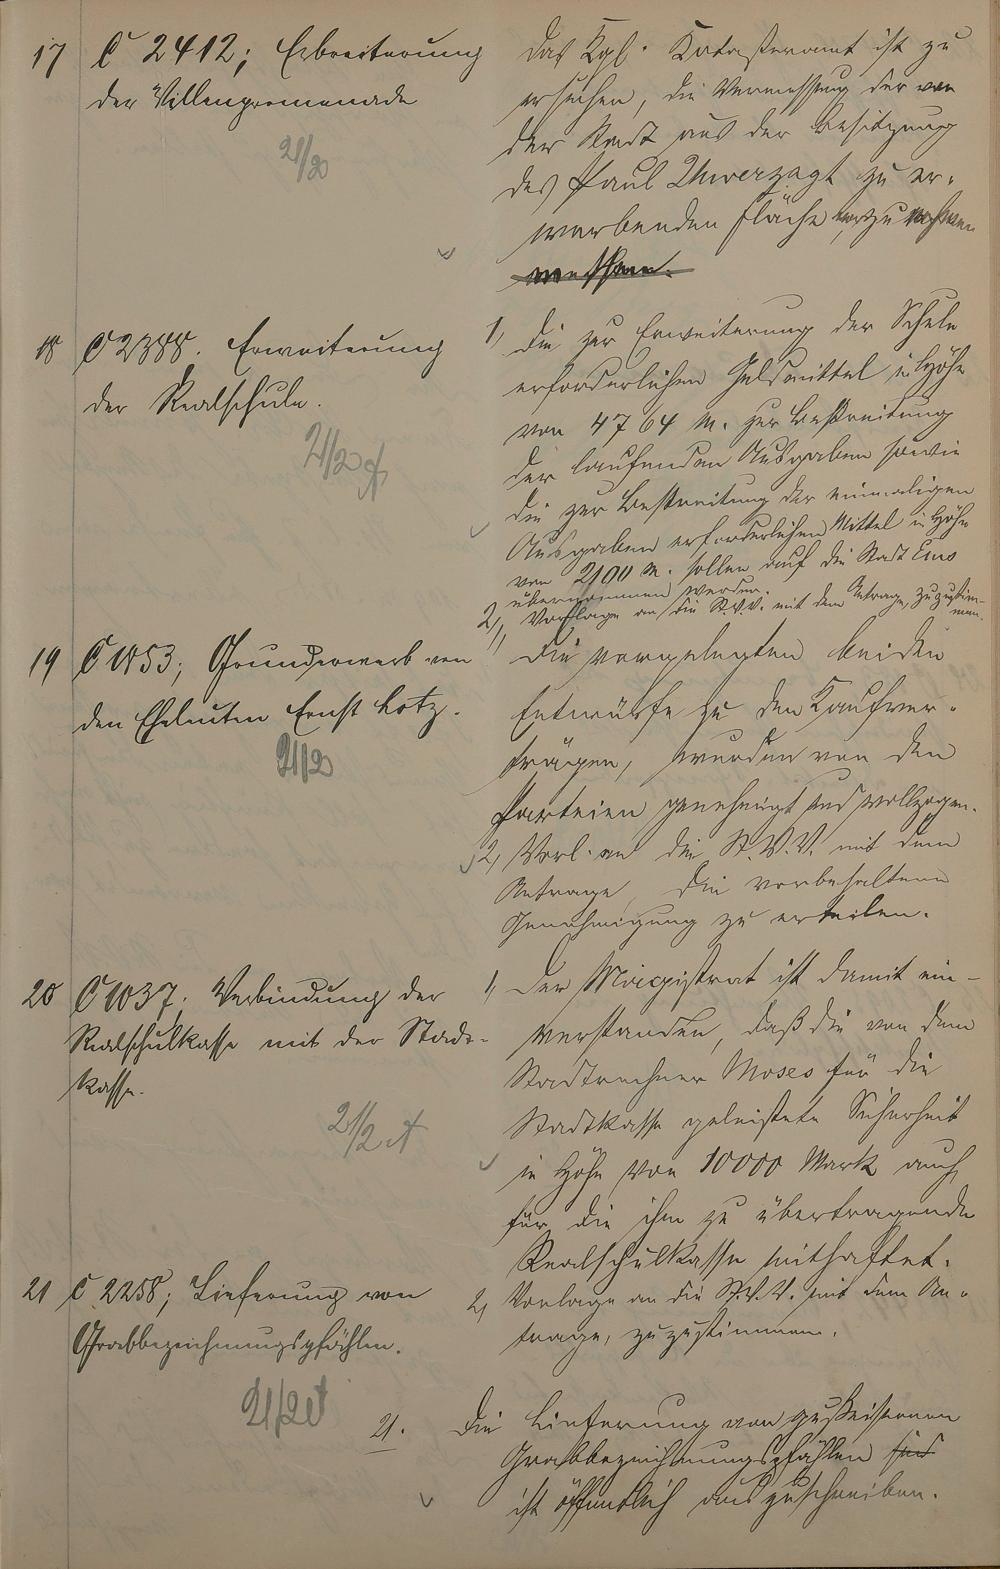 17 C 2412; Erbreiterung
der Villenpromenade
21/2
Das Kgl. Katasteramt ist zu
ersuchen, die Vermessung der von
der Stadt aus der Besitzung
des Paul Unverzagt zu er-
werbenden Fläche vorzunehmen
18 C 2388. Erweiterung
der Realschule.
21/2
1, Die zur Erweiterung der Schule
erforderlichen Geldmittel in Höhe
von 4764 M. zur Bestreitung
der laufenden Ausgaben sowie
die zur Bestreitung der einmaligen
Ausgaben erforderlichen Mittel in Höhe
von 2100 M. sollen auf die Stadt Ems
übernommen werden.
2, Vorlage an die St.V.V. mit dem Antrage, zuzustim-
men.
19 C 1853; Grunderwerb von
den Eheleuten Ernst Lotz.
21/2
1, Die vorgelegten beiden
Entwürfe zu den Kaufver-
trägen, wurden von den
Parteien genehmigt und vollzogen.
2, Vorl. an die St.V.V. mit dem
Antrage, die vorbehaltene
Genehmigung zu erteilen.
20 C 1037; Verbindung der
Realschulkasse mit der Stadt-
kasse.
21/2
1, Der Magistrat ist damit ein-
verstanden, daß die von dem
Stadtrechner Moses für die
Stadtkasse geleistete Sicherheit
in Höhe von 10000 Mark auch
für die ihm zu übertragende
Realschulkasse mithaftet.
2, Vorlage an die St.V.V. mit dem An-
trage, zuzustimmen.
21 C 2258; Lieferung von
Grabbezeichnungspfählen.
21/2
21. Die Lieferung von gußeisernen
Grabbezeichnungspfählen sind
ist öffentlich auszuschreiben.